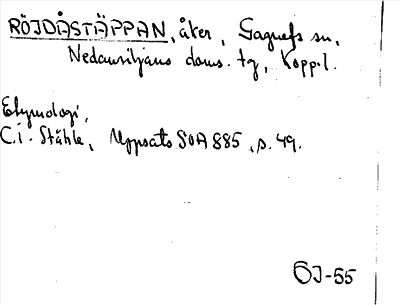 RÖJDÅSTÄPPAN, åker, Gagnefs sn,
Nedansiljans doms. tg, Koppl.
Etymologi,
C.I. Ståhle, Uppsats SOA 885, s. 49.
ÖJ-55